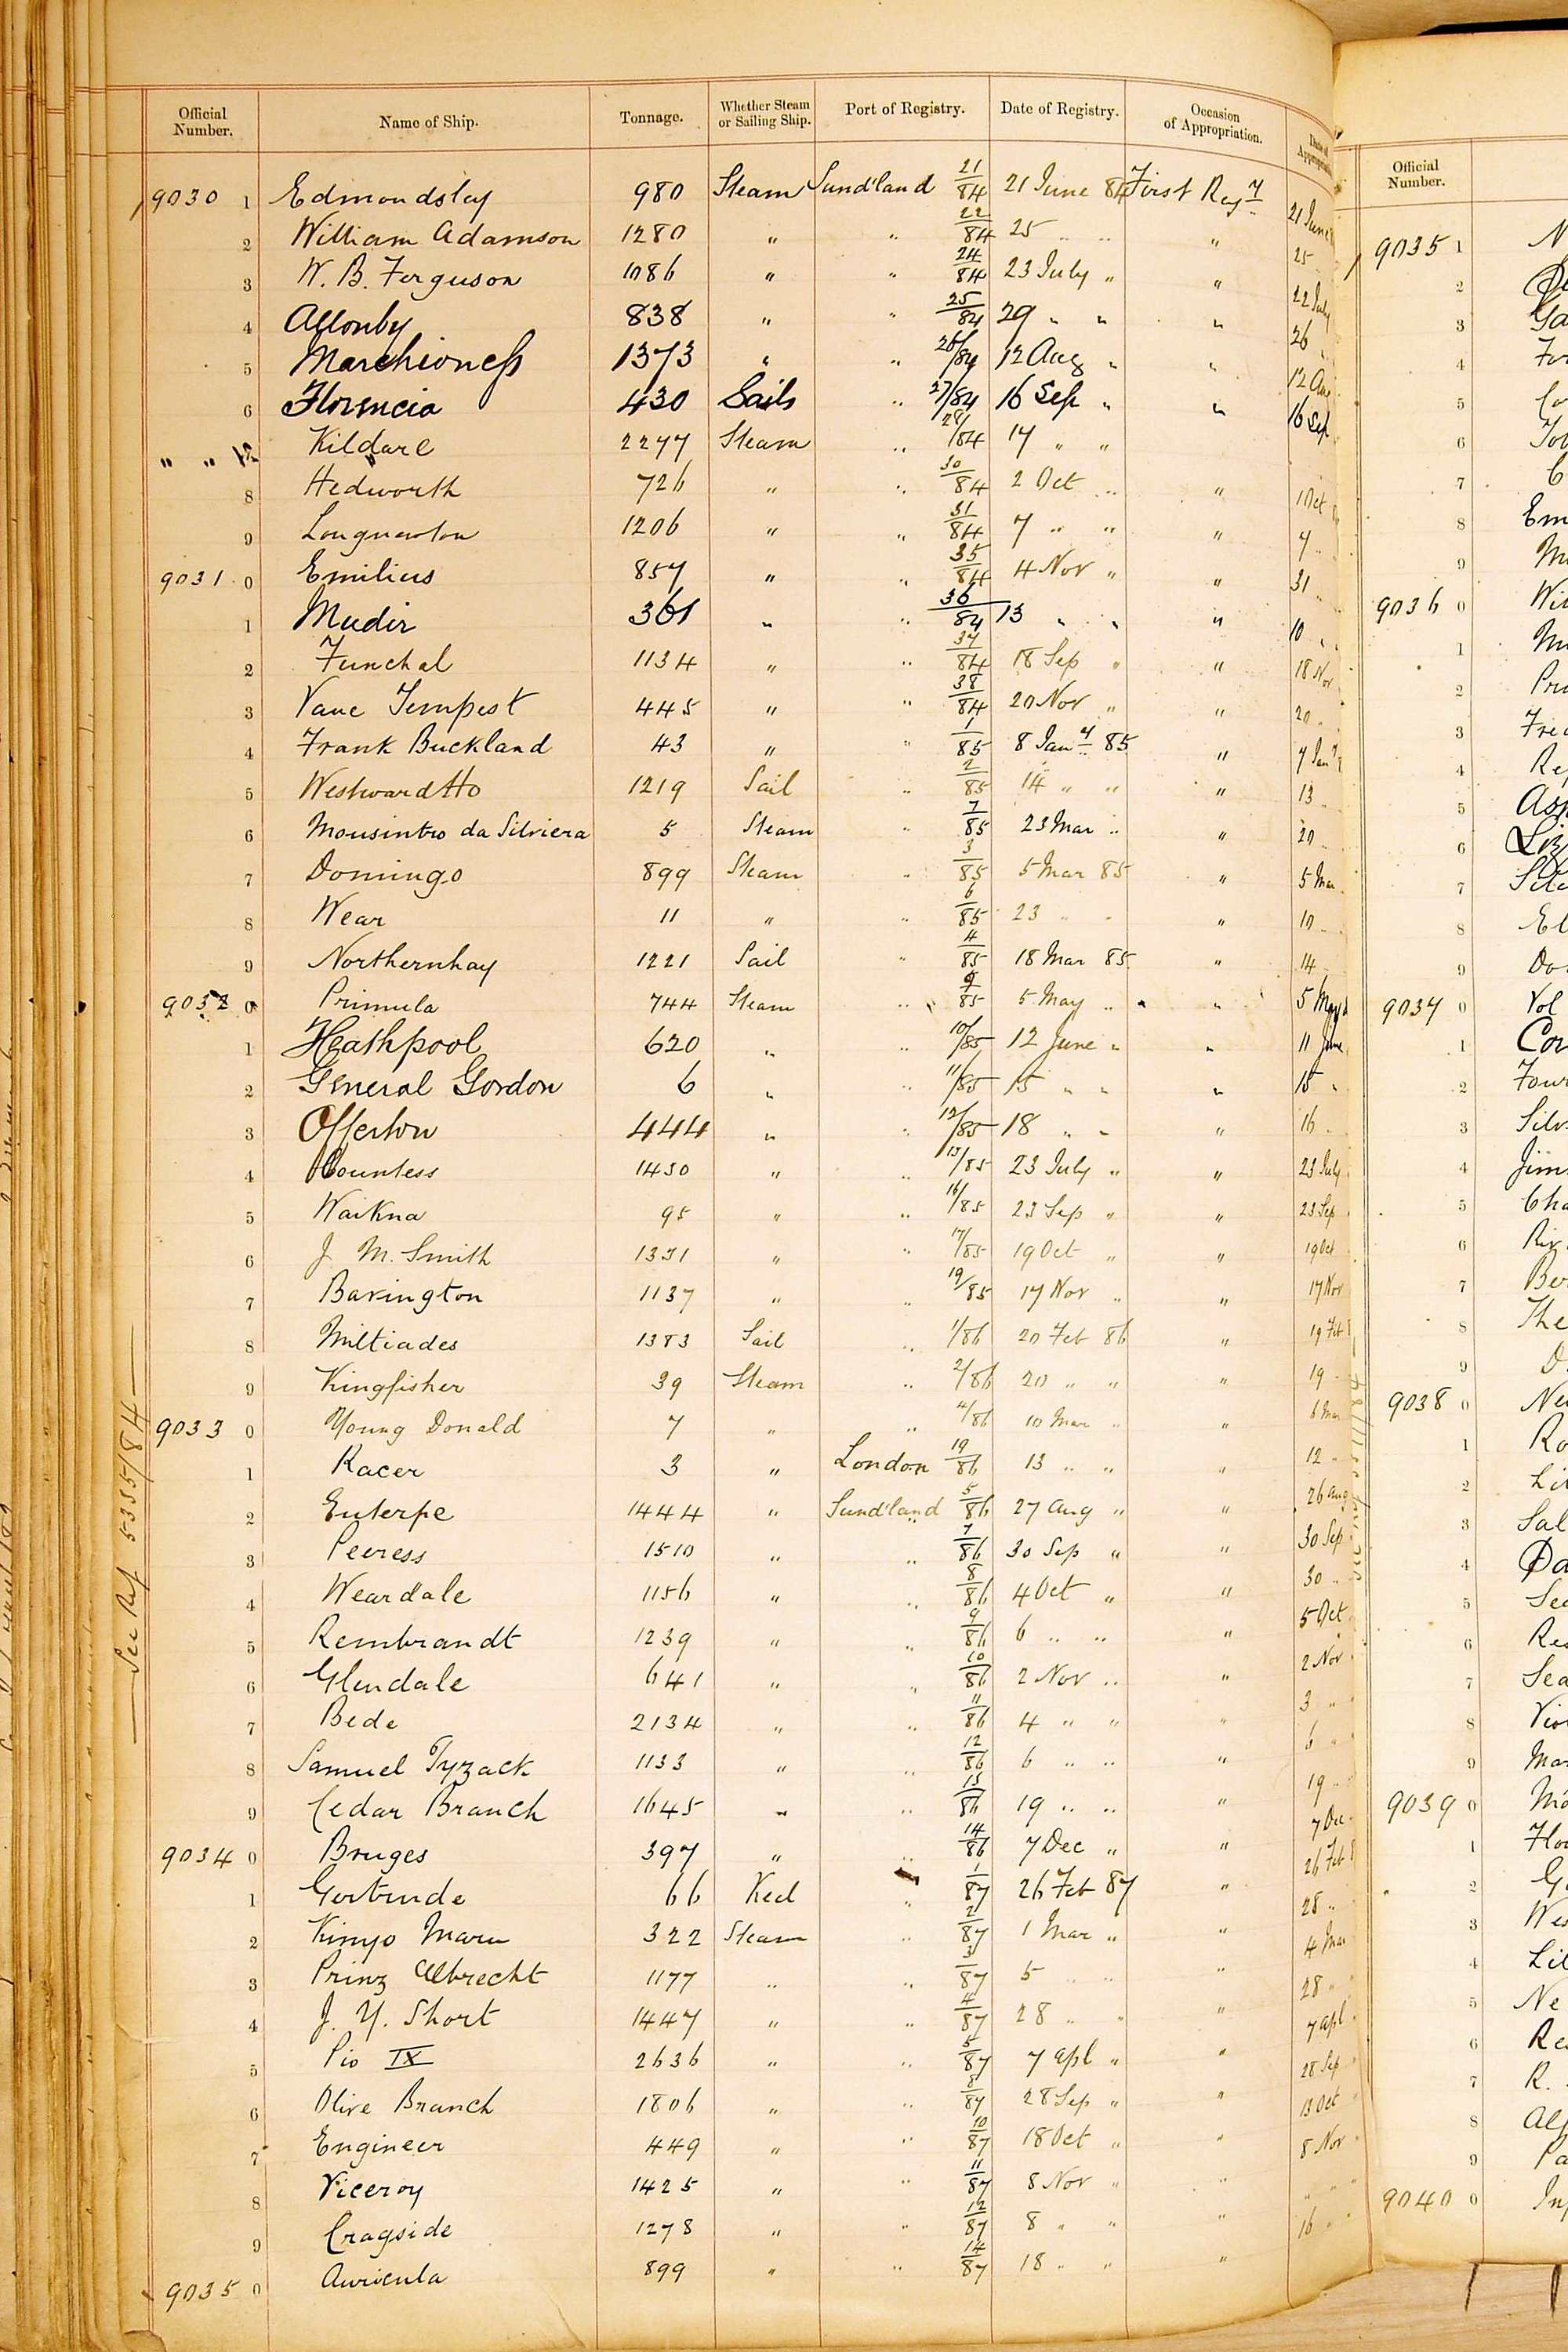 Official Number. Name of Ship. Tonnage. Whether Steam or Sailing Ship. Port of Registry. Date of Registry. Occasion of Appropriation. Date of Official Number.
9030 1 Edmondsley 980 Steam Sund'land 21/84 21 June 84 First Regy 21 June
2 William Adamson 1280 " " 22/84 25 " " " 25
3 W. B. Ferguson 1086 " " 24/84 23 July " " 22 July
4 Allonby 838 " " 25/84 29 " " " 26
5 Marchioness 1373 " " 26/84 12 Aug " " 12 Aug
6 Florencia 430 Sails " 27/84 16 Sep " " 16 Sep
" " Kildare 2277 Steam " 28/84 17 " "
8 Hedworth 726 " " 30/84 2 Oct " " 1 Oct
9 Longnewton 1206 " " 31/84 7 " " " 7
9031 0 Emilius 857 " " 35/84 4 Nov " " 31
1 Mudir 361 " " 36/84 13 " " " 10
2 Funchal 1134 " " 37/84 18 Sep " " 18 Nov
3 Vane Tempest 445 " " 38/84 20 Nov " " 20
4 Frank Buckland 43 " " 1/85 8 Jany 85 " 7 Jany
5 Westward Ho 1219 Sail " 2/85 14 " " " 13
6 Mousinho da Silviera 5 Steam " 7/85 23 Mar " " 20
7 Domingo 899 Steam " 3/85 5 Mar 85 " 5 Mar
8 Wear 11 " " 6/85 23 " " " 10
9 Northernhay 1221 Sail " 4/85 18 Mar 85 " 14
9032 0 Primula 744 Steam " 9/85 5 May " " 5 May
1 Heathpool 620 " " 10/85 12 June " " 11 June
2 General Gordon 6 " " 11/85 15 " " " 15 "
3 Offerton 444 " " 12/85 18 " " " 16
4 Countess 1430 " " 13/85 23 July " " 23 July
5 Waikna 95 " " 16/85 23 Sep " " 23 Sep
6 J. M. Smith 1331 " " 17/85 19 Oct " " 19 Oct
7 Barington 1137 " " 19/85 17 Nov " " 17 Nov
8 Miltiades 1383 Sail " 1/86 20 Feb 86 " 19 Feb
9 Kingfisher 39 Steam " 2/86 20 " " " 19
9033 0 Young Donald 7 " " 4/86 10 Mar " " 6 Mar
1 Racer 3 " London 19/86 13 " " " 12
2 Euterpe 1444 " Sund'land 5/86 27 Aug " " 26 Aug
3 Peeress 1510 " " 7/86 30 Sep " " 30 Sep
4 Weardale 1156 " " 8/86 4 Oct " " 30
5 Rembrandt 1239 " " 9/86 6 " " " 5 Oct
6 Glendale 641 " " 10/86 2 Nov " " 2 Nov
7 Bede 2134 " " 11/86 4 " " " 3 "
8 Samuel Tyzack 1133 " " 12/86 6 " " " 6 "
9 Cedar Branch 1645 " " 13/86 19 " " " 19 "
9034 0 Bruges 397 " " 14/86 7 Dec " " 7 Dec
1 Gertrude 66 Keel " 1/87 26 Feb 87 " 26 Feb
2 Kinyo Maru 322 Steam " 2/87 1 Mar " " 28
3 Prinz Albrecht 1177 " " 3/87 5 " " " 4 Mar
4 J. Y. Short 1447 " " 4/87 28 " " " 28
5 Pio IX 2636 " " 5/87 7 Apl " " 7 Apl
6 Olive Branch 1806 " " 8/87 28 Sep " " 28 Sep
7 Engineer 449 " " 10/87 18 Oct " " 13 Oct
8 Viceroy 1425 " " 11/87 8 Nov " " 8 Nov
9 Cragside 1278 " " 12/87 8 " " " " "
9035 0 Auricula 899 " " 14/87 18 " " " 16 "
See Ref 5355/84
Official Number.
9035 1
2
3
4
5
6
7
8 Em
9
9036 0
1
2
3
4
5
6
7
8
9
9037 0 Vol
1
2
3
4
5
6
7
8 The
9
9038 0
1
2
3
4
5
6
7
8
9
9039 0
1
2
3
4
5
6
7
8
9
9040 0